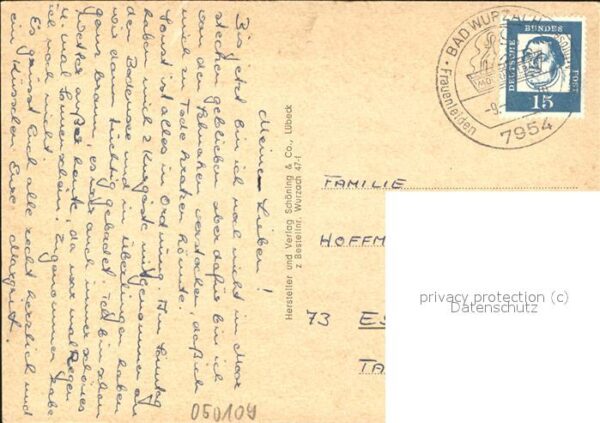 Meine Lieben!
Bis jetzt bin ich mal nicht im Moor
stecken geblieben aber dafür bin ich
von den Schnaken verstochen, daß ich
mich zu Tode kratzen könnte.
Sonst ist alles in Ordnung. Am Sonntag
haben mich 2 Kurgäste mitgenommen an
den Bodensee und in Überlingen haben
wir dann tüchtig gebadet. Ich bin schon
ganz braun, es war auch immer schönes
Wetter außer heute, da war mal Regen
u. mal Sonnenschein. Zugenommen habe
ich noch nicht.
Es grüsst Euch alle recht herzlich und
ein Küsschen Eure Margret.
Hersteller und Verlag Schöning & Co., Lübeck
z Bestellnr. Wurzach 47-f
BAD WURZACH
Frauenleiden
-9.
7954
DEUTSCHE
BUNDES
POST
15
FAMILIE
HOFFM
73 ES
TA
privacy protection (c)
Datenschutz
050109